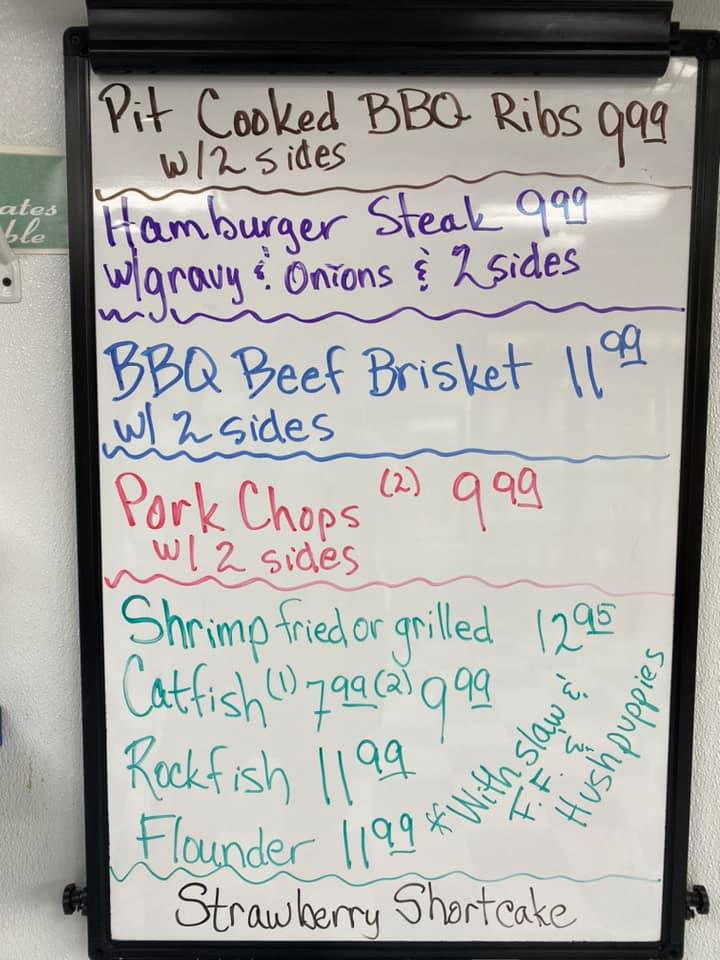 Pit Cooked BBQ Ribs 9.99
w/2 sides
Hamburger Steak 9.99
w/gravy & Onions & 2 sides
BBQ Beef Brisket 11.99
w/ 2 sides
Pork Chops (2) 9.99
w/ 2 sides
Shrimp fried or grilled 12.95
Catfish (1) 7.99 (2) 9.99
Rockfish 11.99
Flounder 11.99
*With slaw &
F.F. &
Hushpuppies
Strawberry Shortcake